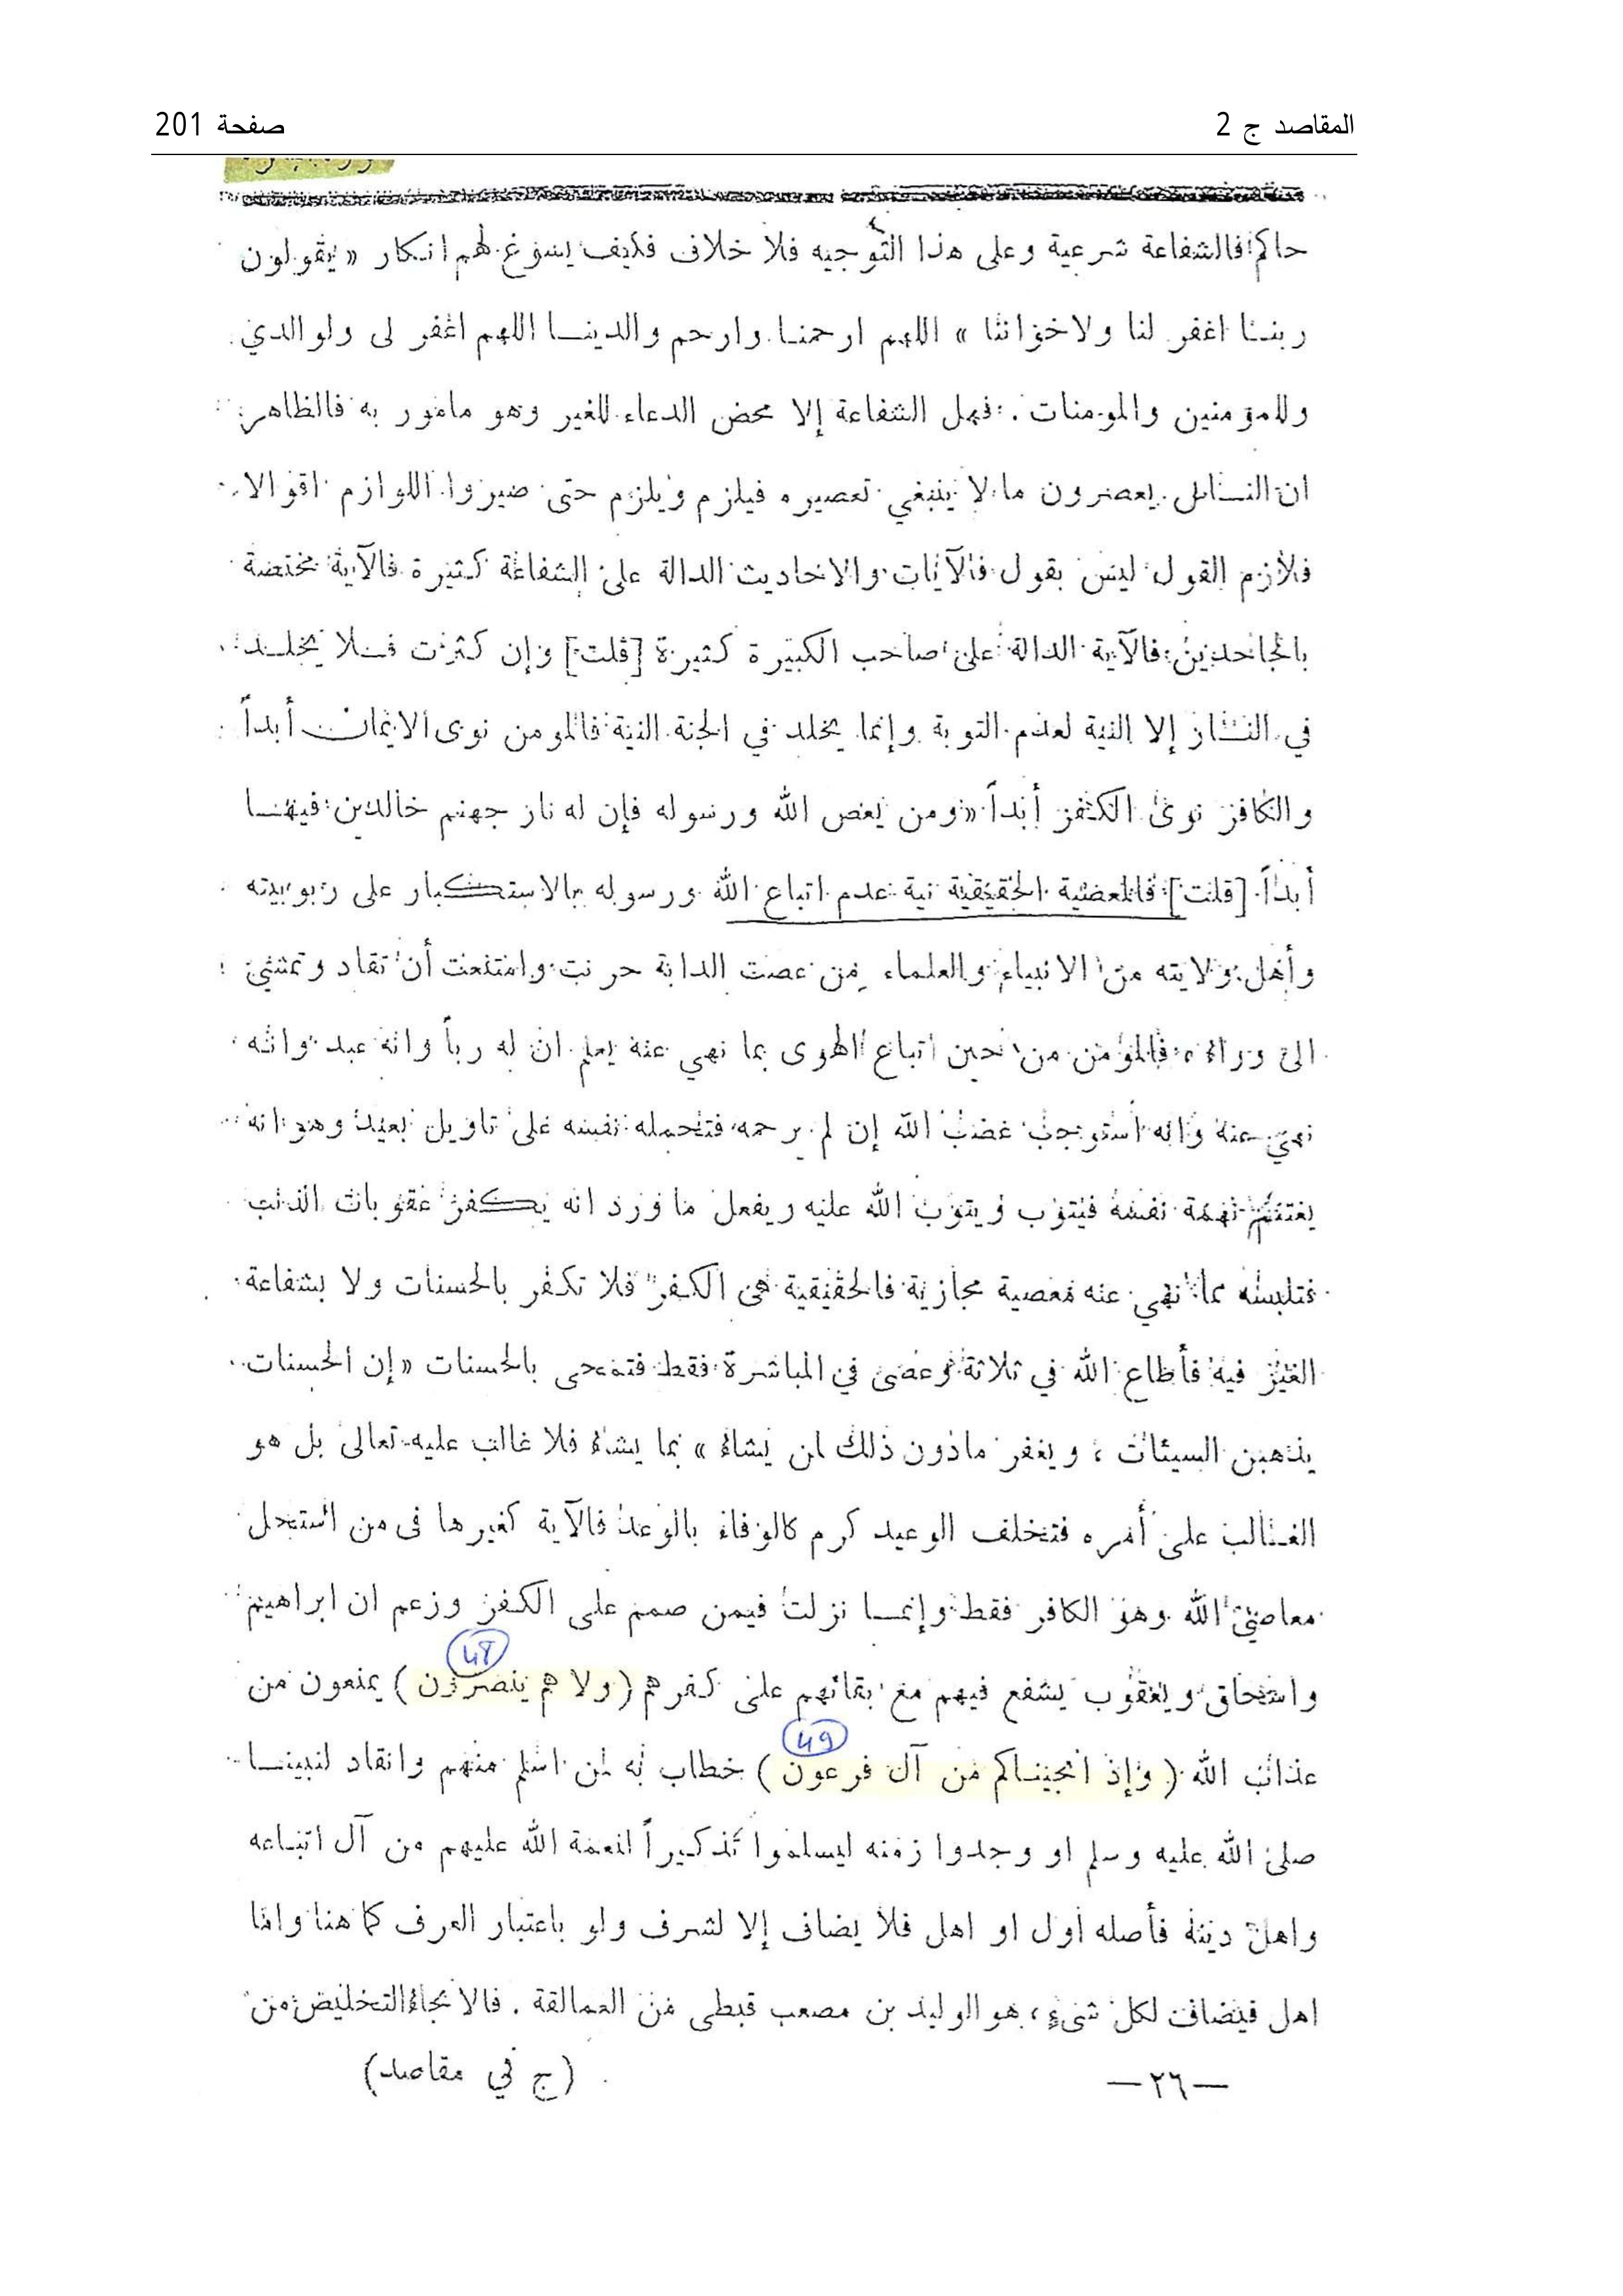 المقاصد ج 2
صفحة 201
حاكم فالشفاعة شرعية وعلى هذا التوجيه فلا خلاف فكيف يسوغ لهم انكار « يقولون
ربنا اغفر لنا ولاخواننا » اللهم ارحمنا وارحم والدينا اللهم اغفر لى ولوالدي
وللمؤمنين والمومنات . فهل الشفاعة إلا محض الدعاء للغير وهو مامور به فالظاهر
ان الناس يعصرون ما لا ينبغي تعصيره فيلزم ويلزم حتى صيروا اللوازم اقوالا
فلازم القول ليس بقول فالآيات والاحاديث الدالة على الشفاعة كثيرة فالآية مختصة
بالجاحدين فالآية الدالة على صاحب الكبيرة كثيرة [قلت] وإن كثرت فلا يخلد
في النار إلا النية لعدم التوبة وإنما يخلد في الجنة النية فالمومن نوى الايمان أبداً
والكافر نوى الكفر أبداً « ومن يعص الله ورسوله فإن له نار جهنم خالدين فيها
أبداً [قلت] فالمعصية الحقيقية نية عدم اتباع الله ورسوله بالاستكبار على ربوبيته
وأهل ولايته من الانبياء والعلماء من عصت الدابة حرنت وامتنعت أن تقاد وتمشي
الى وراء ، فالمؤمن من حين اتباع الهوى بما نهي عنه يعلم ان له رباً وانه عبد وانه
نهي عنه وانه استوجب غضب الله إن لم يرحمه فتحمله نفسه على تاويل بعيد وهو انه
يغتنم نهمة نفسه فيتوب ويتوب الله عليه ويفعل ما ورد انه يكفر عقوبات الذنب
فتلبسه بما نهي عنه معصية مجازية فالحقيقية هى الكفر فلا تكفر بالحسنات ولا بشفاعة
الغير فيه فأطاع الله في ثلاثة وعصى في المباشرة فقط فتمحى بالحسنات « إن الحسنات
يذهبن السيئات ، ويغفر مادون ذلك لمن يشاء » بما يشاء فلا غالب عليه تعالى بل هو
الغالب على أمره فتخلف الوعيد كرم كالوفاء بالوعد فالآية كغيرها فى من استحل
معاصي الله وهو الكافر فقط وإنما نزلت فيمن صمم على الكفر وزعم ان ابراهيم
48
واسحاق ويعقوب يشفع فيهم مع بقائهم على كفرهم (ولا هم ينصرون) يمنعون من
49
عذاب الله (وإذ انجيناكم من آل فرعون) خطاب به لمن اسلم منهم وانقاد لنبينا
صلى الله عليه وسلم او وجدوا زمنه ليسلموا تذكيراً لنعمة الله عليهم من آل اتباعه
واهل دينه فأصله أول او اهل فلا يضاف إلا لشرف ولو باعتبار العرف كما هنا واما
اهل فيضاف لكل شىء ، هو الوليد بن مصعب قبطى من العمالقة . فالانجاء التخليص من
—٢٦—
(ج في مقاصد)